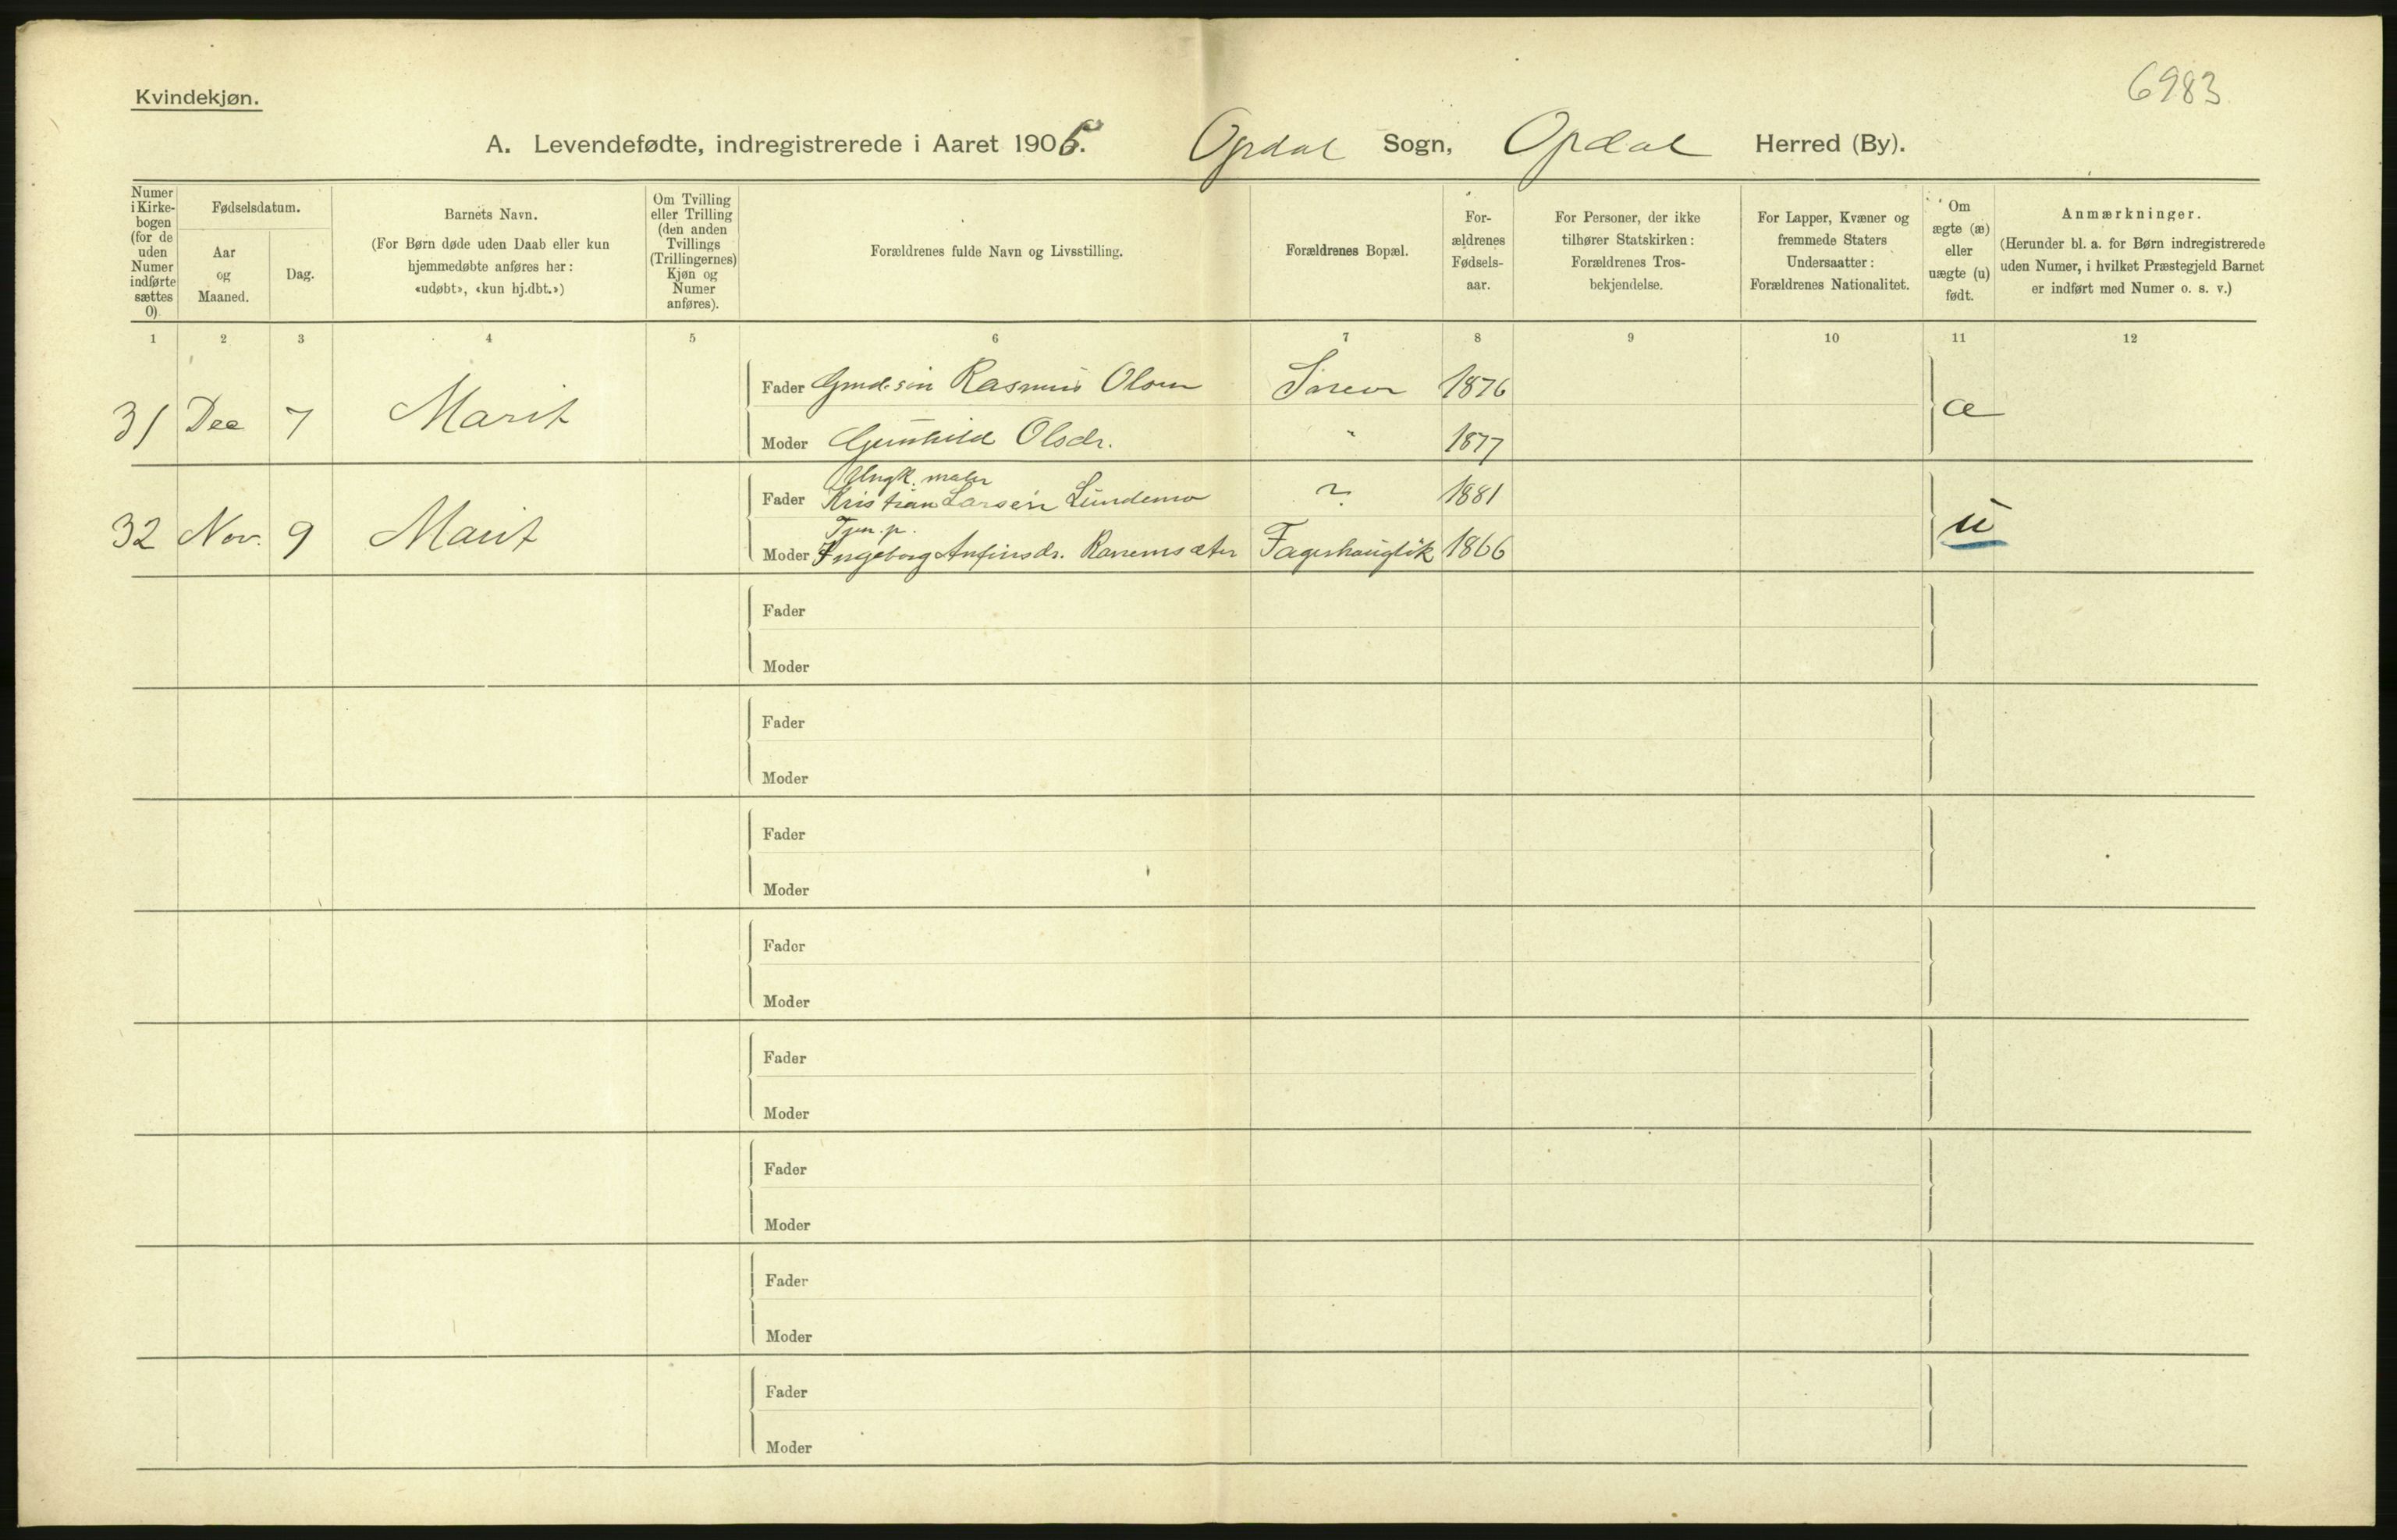 6983
Kvindekjøn.
A. Levendefødte, indregistrerede i Aaret 1905. Opdal Sogn, Opdal Herred (By).
Numer i Kirke-bogen (for de uden Numer indførte sættes 0)
Fødselsdatum.
Aar og Maaned.
Dag.
Barnets Navn.
(For Børn døde uden Daab eller kun
hjemmedøbte anføres her:
«udøbt», «kun hj.dbt.»)
Om Tvilling
eller Trilling
(den anden
Tvillings
(Trillingernes)
Kjøn og
Numer
anføres).
Forældrenes fulde Navn og Livsstilling.
Forældrenes Bopæl.
For-
ældrenes
Fødsels-
aar.
For Personer, der ikke
tilhører Statskirken:
Forældrenes Tros-
bekjendelse.
For Lapper, Kvæner og
fremmede Staters
Undersaatter:
Forældrenes Nationalitet.
Om
ægte (æ)
eller
uægte (u)
født.
Anmærkninger.
(Herunder bl. a. for Børn indregistrerede
uden Numer, i hvilket Præstegjeld Barnet
er indført med Numer o. s. v.)
1 2 3 4 5 6 7 8 9 10 11 12
31 Dec 7 Marit
Fader Gmd.søn Rasmus Olsen 1876
æ
Moder Gunhild Olsdr. " 1877
32 Nov. 9 Marit
Ungk. maler
Fader Kristian Larsen Lundemo ? 1881
u
Tjen. p.
Moder Ingeborg Anfinsdr. Ranemsæter Fagerhaugløk 1866
Fader
Moder
Fader
Moder
Fader
Moder
Fader
Moder
Fader
Moder
Fader
Moder
Fader
Moder
Fader
Moder